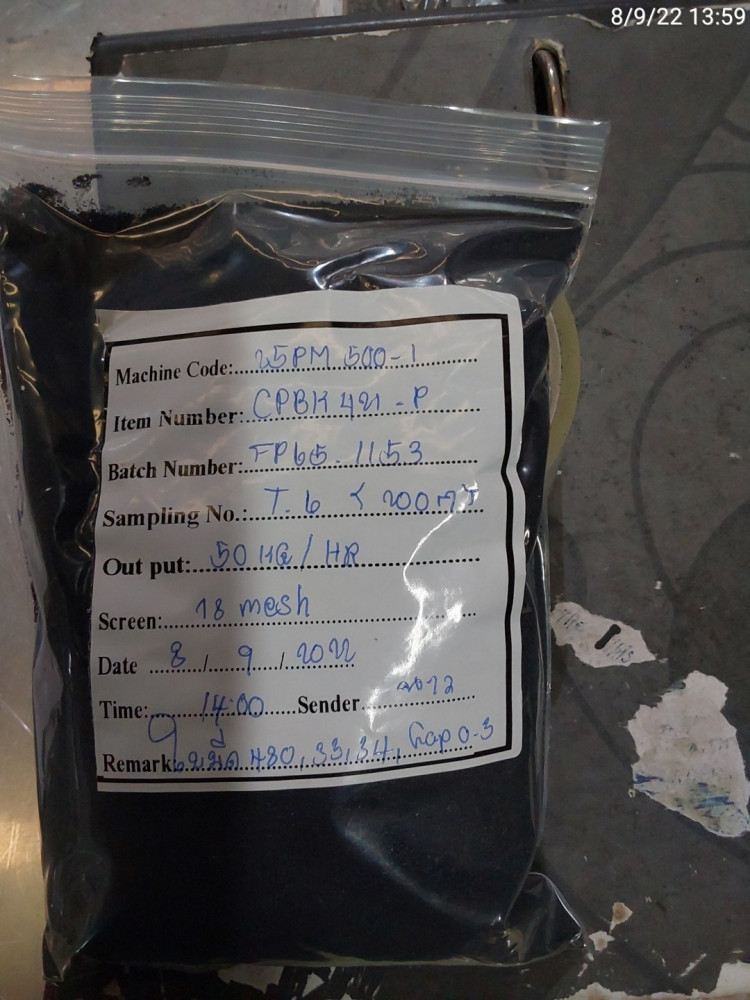 8/9/22 13:59
Machine Code: 25PM 500-1
Item Number: CPBK 421-P
Batch Number: FP65.1153
Sampling No.: T.6 <
Out put: 50 KG / HR
Screen: 18 mesh
Date 8 / 9 / 2022
Time: 14:00 Sender
Remark: ใบมีด 480, 33, 34, Gap 0.3